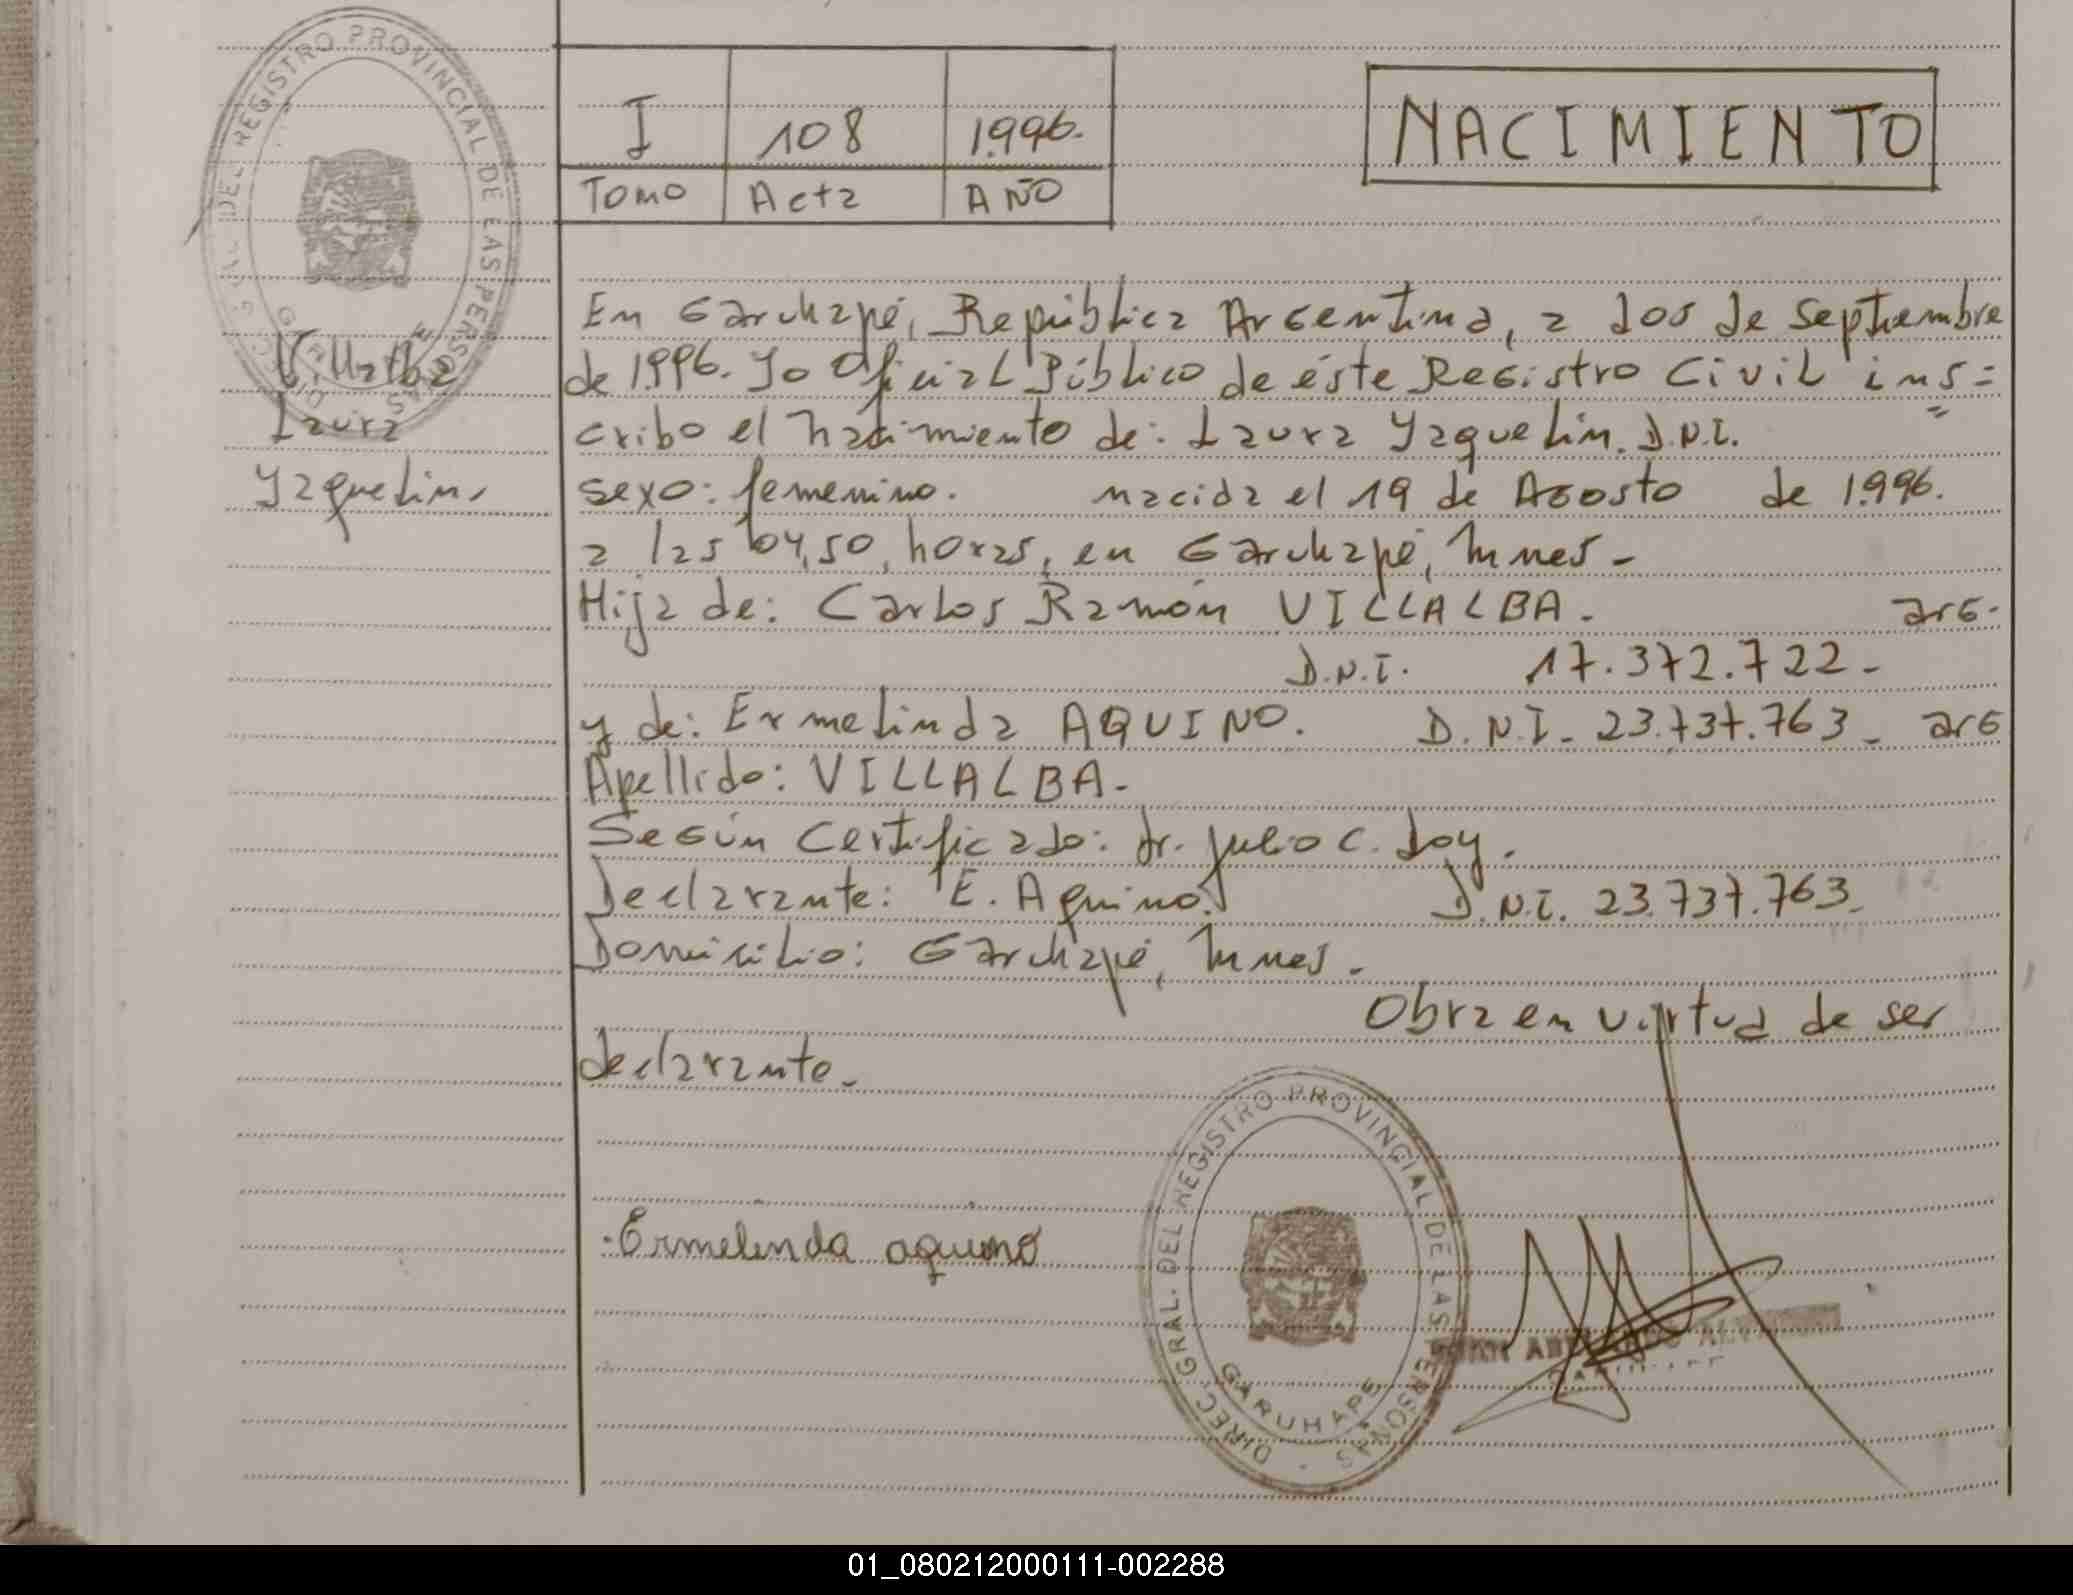 DIREC. GRAL. DEL REGISTRO PROVINCIAL DE LAS PERSONAS
I 108 1.996.
Tomo Acta AÑO
NACIMIENTO
Villalba
Laura
Yaquelin.
En Garuhapé, República Argentina, a dos de septiembre
de 1.996. Yo Oficial Público de éste Registro Civil ins=
cribo el nacimiento de: Laura Yaquelin. D.N.I.
sexo: femenino. nacida el 19 de Agosto de 1.996.
a las 04,50, horas, en Garuhapé, Mnes-
Hija de: Carlos Ramón VILLALBA. arg.
D.N.I. 17.372.722-
y de: Ermelinda AQUINO. D.N.I. 23.737.763- arg
Apellido: VILLALBA.
Según Certificado: dr. Julio C.
Declarante: E. Aquino. D.N.I. 23.737.763-
Domicilio: Garuhapé, Mnes.
Obra en virtud de ser
declarante.
Ermelinda aquino
DIREC. GRAL. DEL REGISTRO PROVINCIAL DE LAS PERSONAS
GARUHAPE
01_080212000111-002288